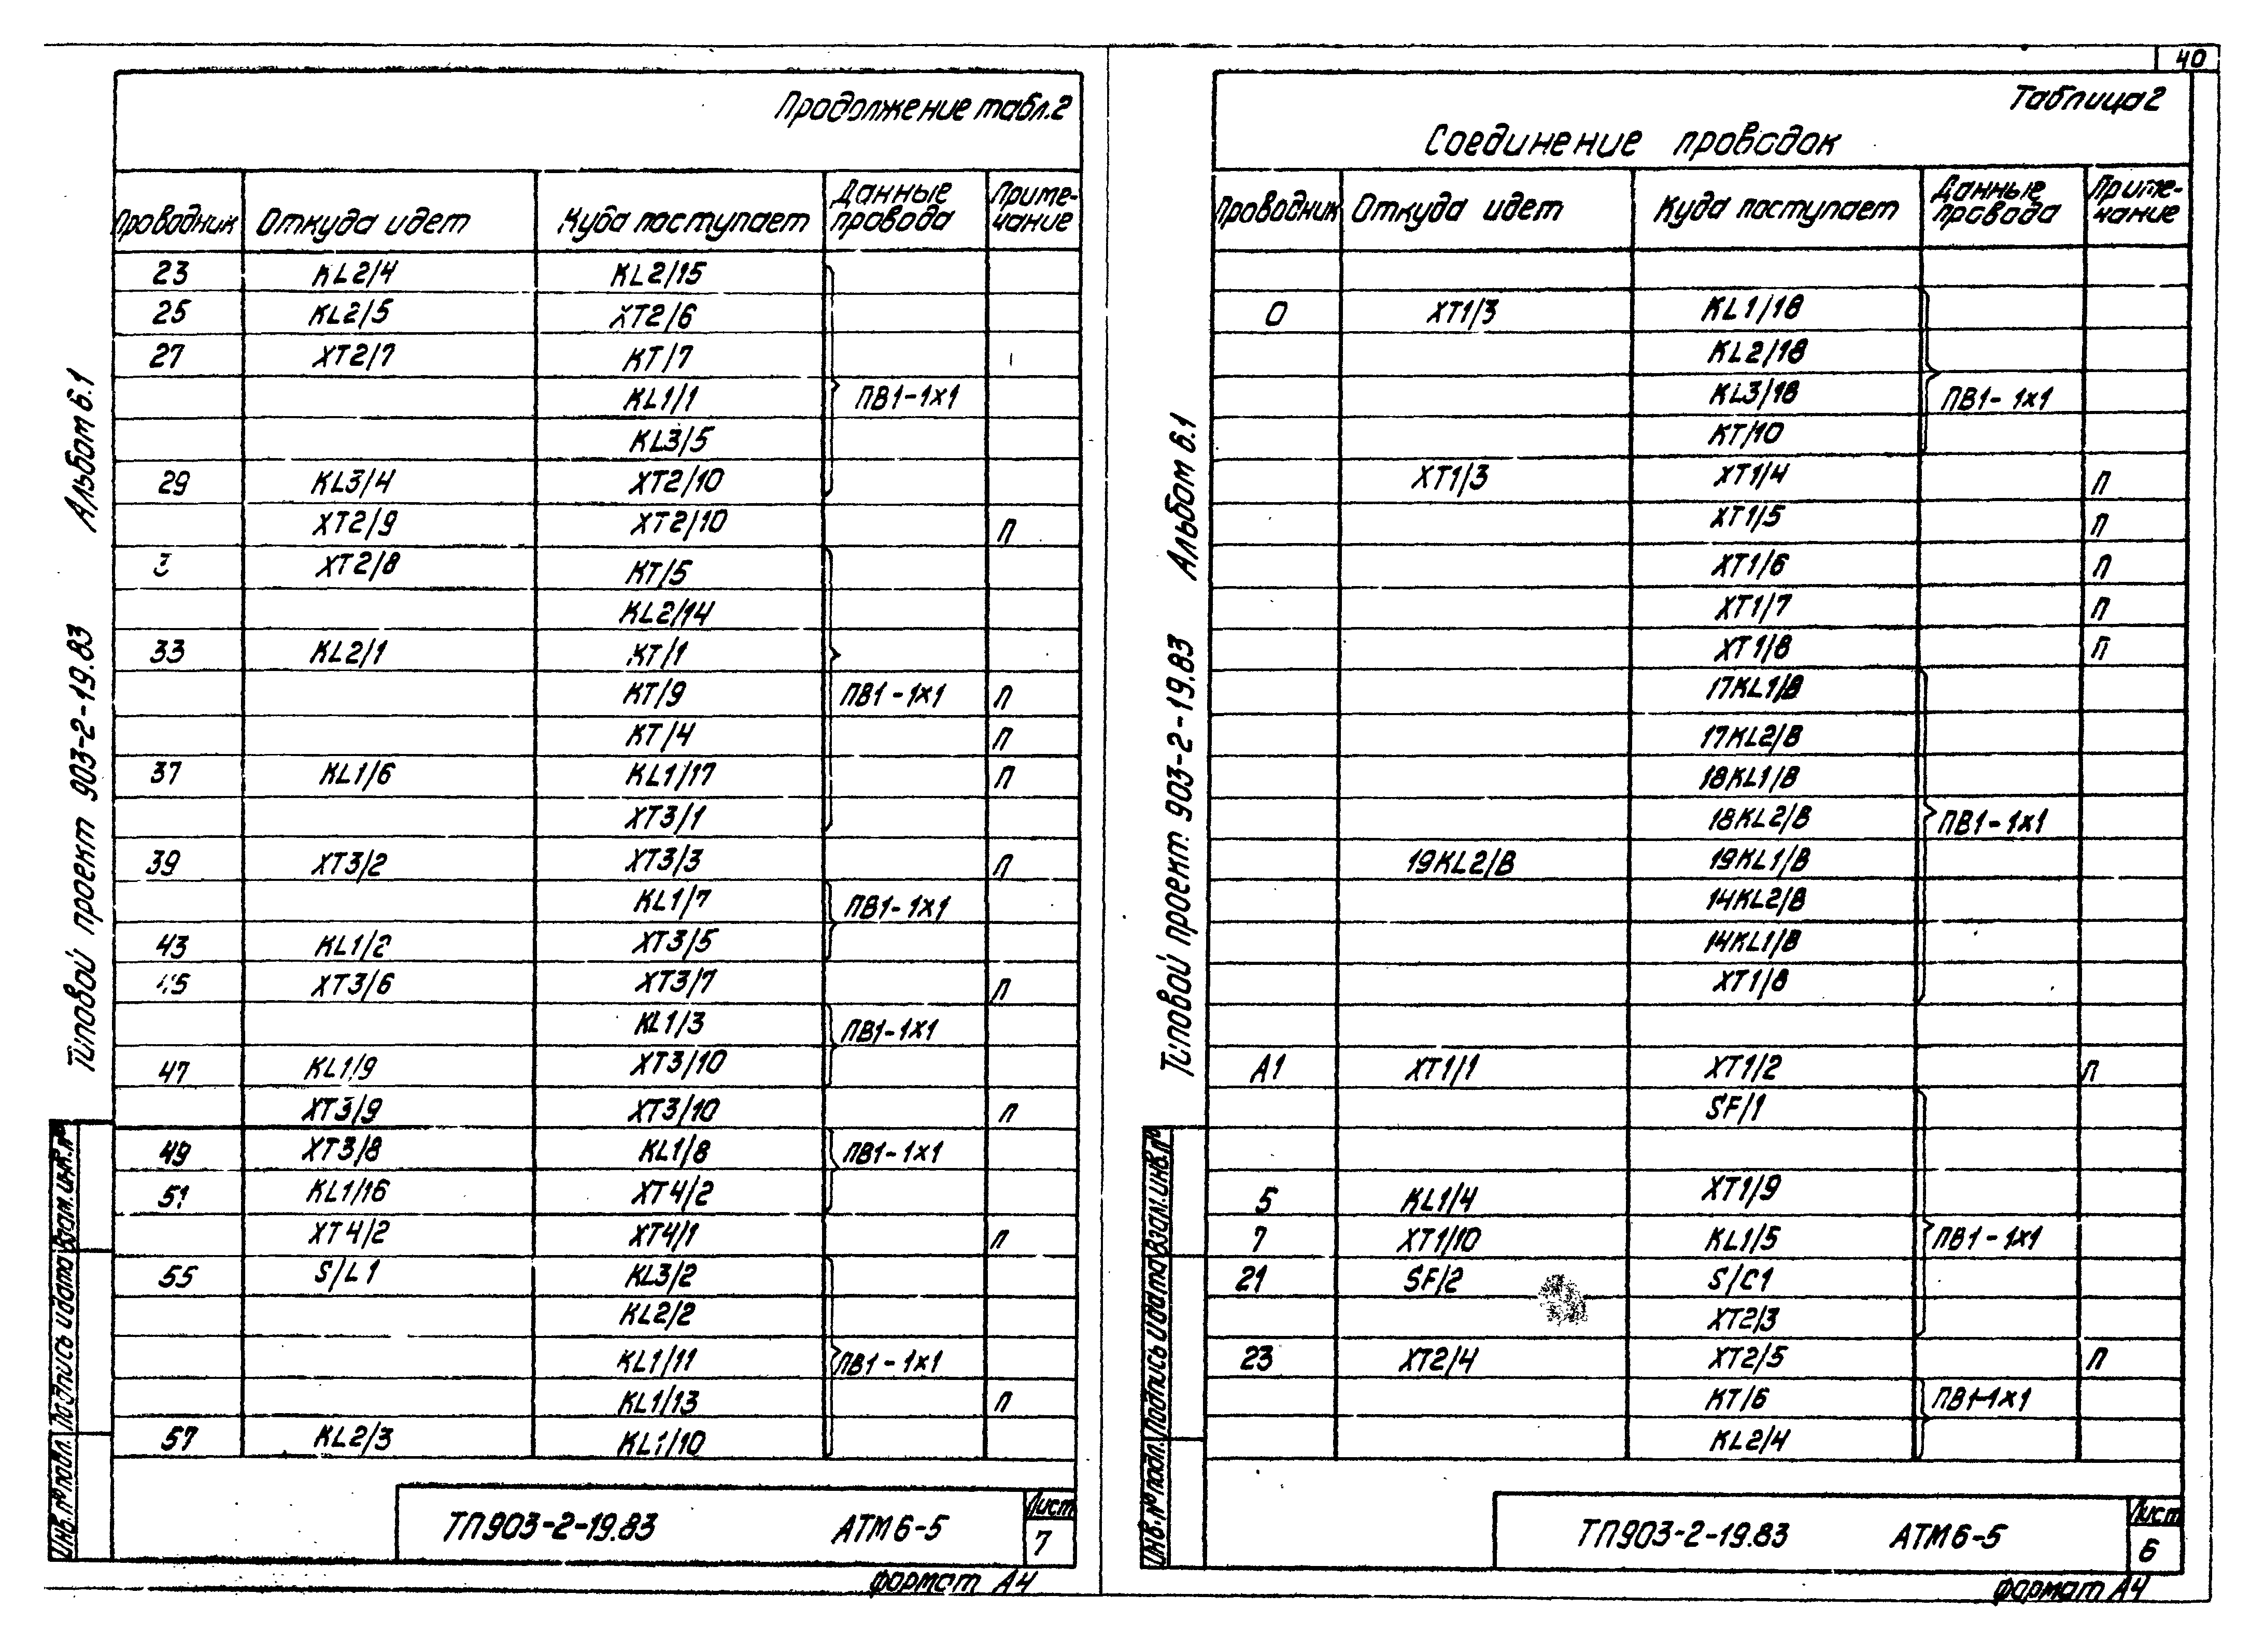 40
Продолжение табл.2
Проводник Откуда идет Куда поступает Данные провода Примечание
23 KL2/4 KL2/15
25 KL2/5 XT2/6
27 XT2/7 KT/7
KL1/1 ПВ1-1x1
KL3/5
29 KL3/4 XT2/10
XT2/9 XT2/10 П
3 XT2/8 KT/5
KL2/14
33 KL2/1 KT/1
KT/9 ПВ1-1x1 П
KT/4 П
37 KL1/6 KL1/17 П
XT3/1
39 XT3/2 XT3/3 П
KL1/7 ПВ1-1x1
43 KL1/2 XT3/5
45 XT3/6 XT3/7 П
KL1/3 ПВ1-1x1
47 KL1/9 XT3/10
XT3/9 XT3/10 П
49 XT3/8 KL1/8 ПВ1-1x1
51 KL1/16 XT4/2
XT4/2 XT4/1 П
55 S/L1 KL3/2
KL2/2
KL1/11 ПВ1-1x1
KL1/13 П
57 KL2/3 KL1/10
ТП903-2-19.83 АТМ6-5 Лист 7
формат А4
Альбом 6.1
Типовой проект 903-2-19.83
Инв.№подл. Подпись и дата Взам.инв.№
Таблица 2
Соединение проводок
Проводник Откуда идет Куда поступает Данные провода Примечание
0 XT1/3 KL1/18
KL2/18
KL3/18 ПВ1-1x1
KT/10
XT1/3 XT1/4 П
XT1/5 П
XT1/6 П
XT1/7 П
XT1/8 П
17KL1/B
17KL2/B
18KL1/B
18KL2/B ПВ1-1x1
19KL2/B 19KL1/B
14KL2/B
14KL1/B
XT1/8
A1 XT1/1 XT1/2 П
SF/1
5 KL1/4 XT1/9
7 XT1/10 KL1/5 ПВ1-1x1
21 SF/2 S/C1
XT2/3
23 XT2/4 XT2/5 П
KT/6 ПВ1-1x1
KL2/4
ТП903-2-19.83 АТМ6-5 Лист 6
формат А4
Альбом 6.1
Типовой проект 903-2-19.83
Инв.№подл. Подпись и дата Взам.инв.№